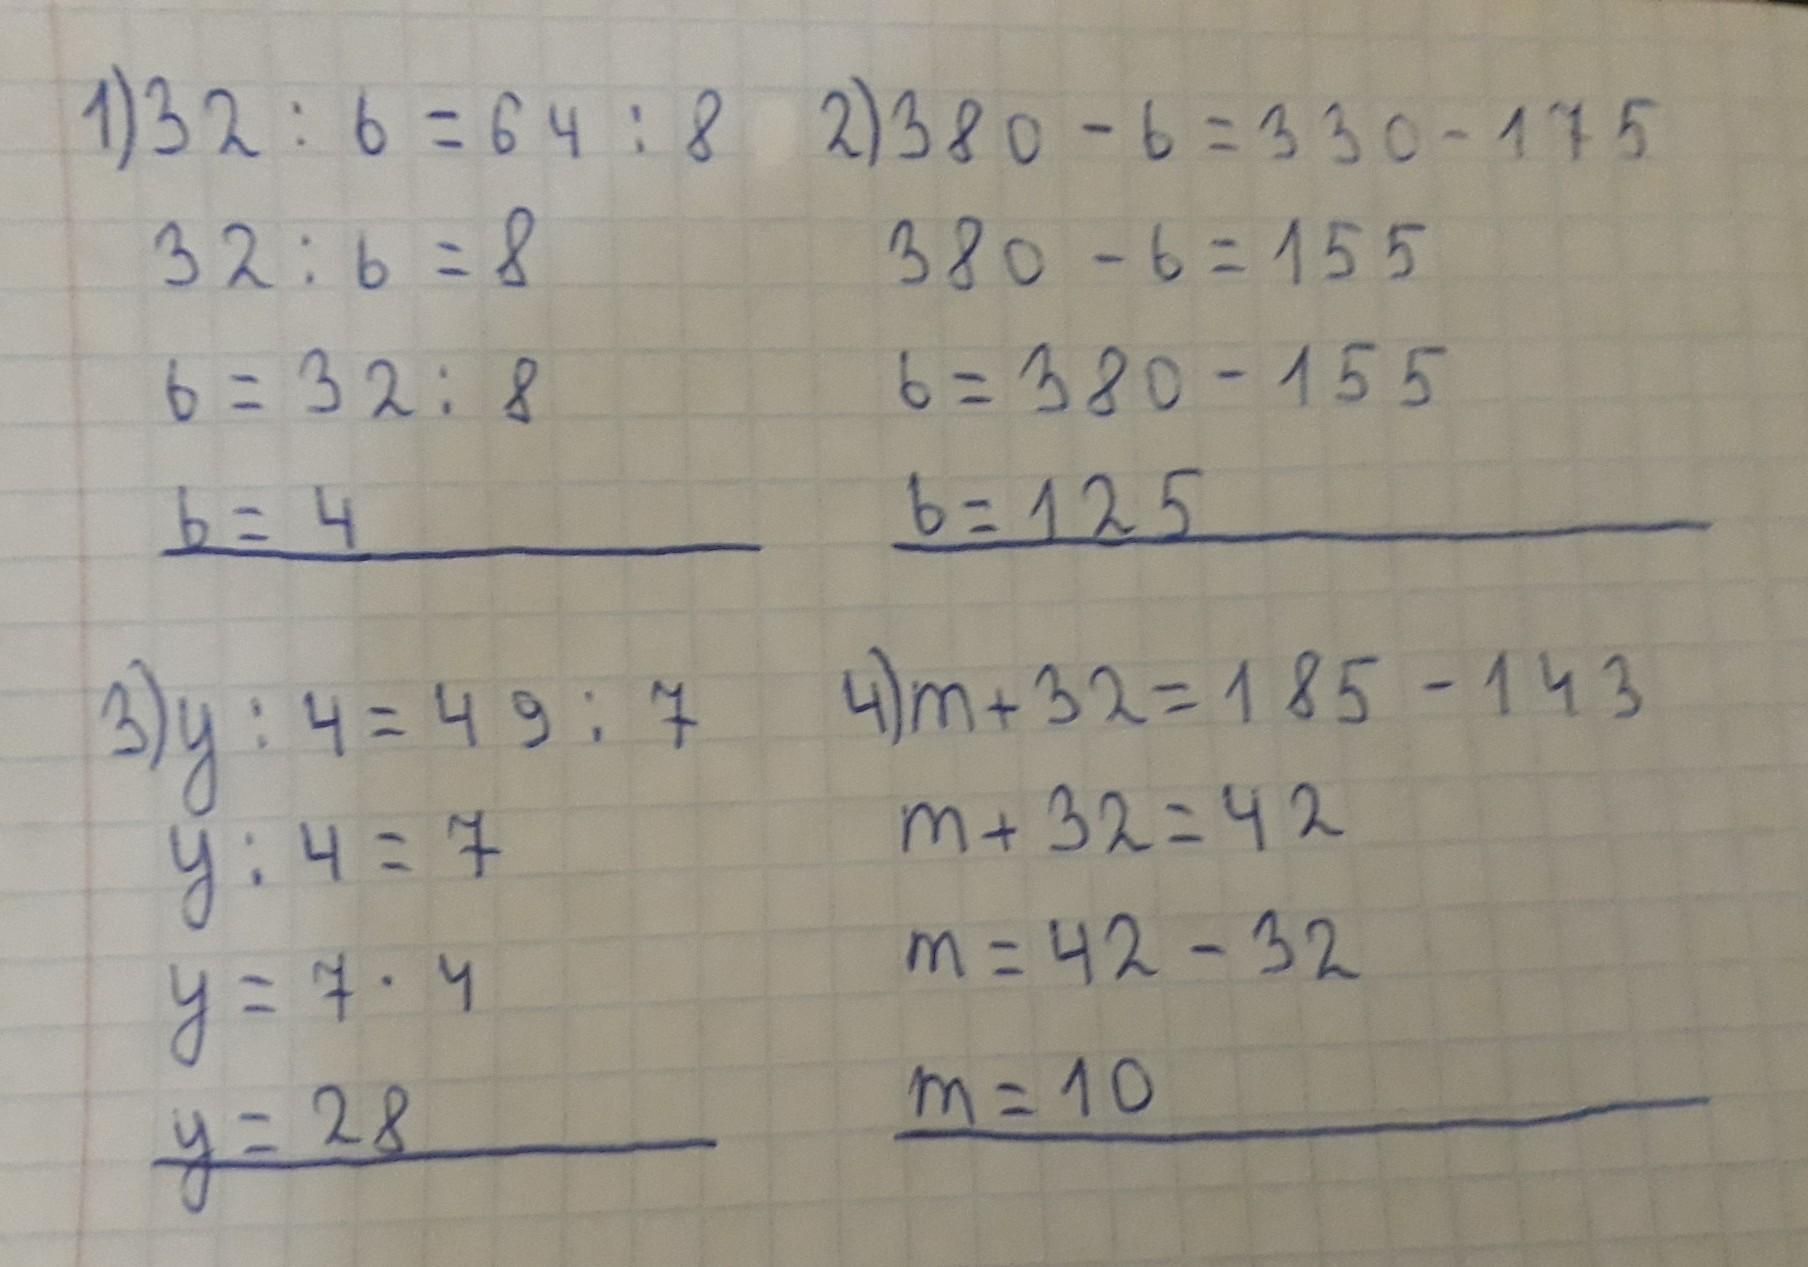 1) 32 : b = 64 : 8
32 : b = 8
b = 32 : 8
b = 4
2) 380 - b = 330 - 175
380 - b = 155
b = 380 - 155
b = 125
3) y : 4 = 49 : 7
y : 4 = 7
y = 7 · 4
y = 28
4) m + 32 = 185 - 143
m + 32 = 42
m = 42 - 32
m = 10